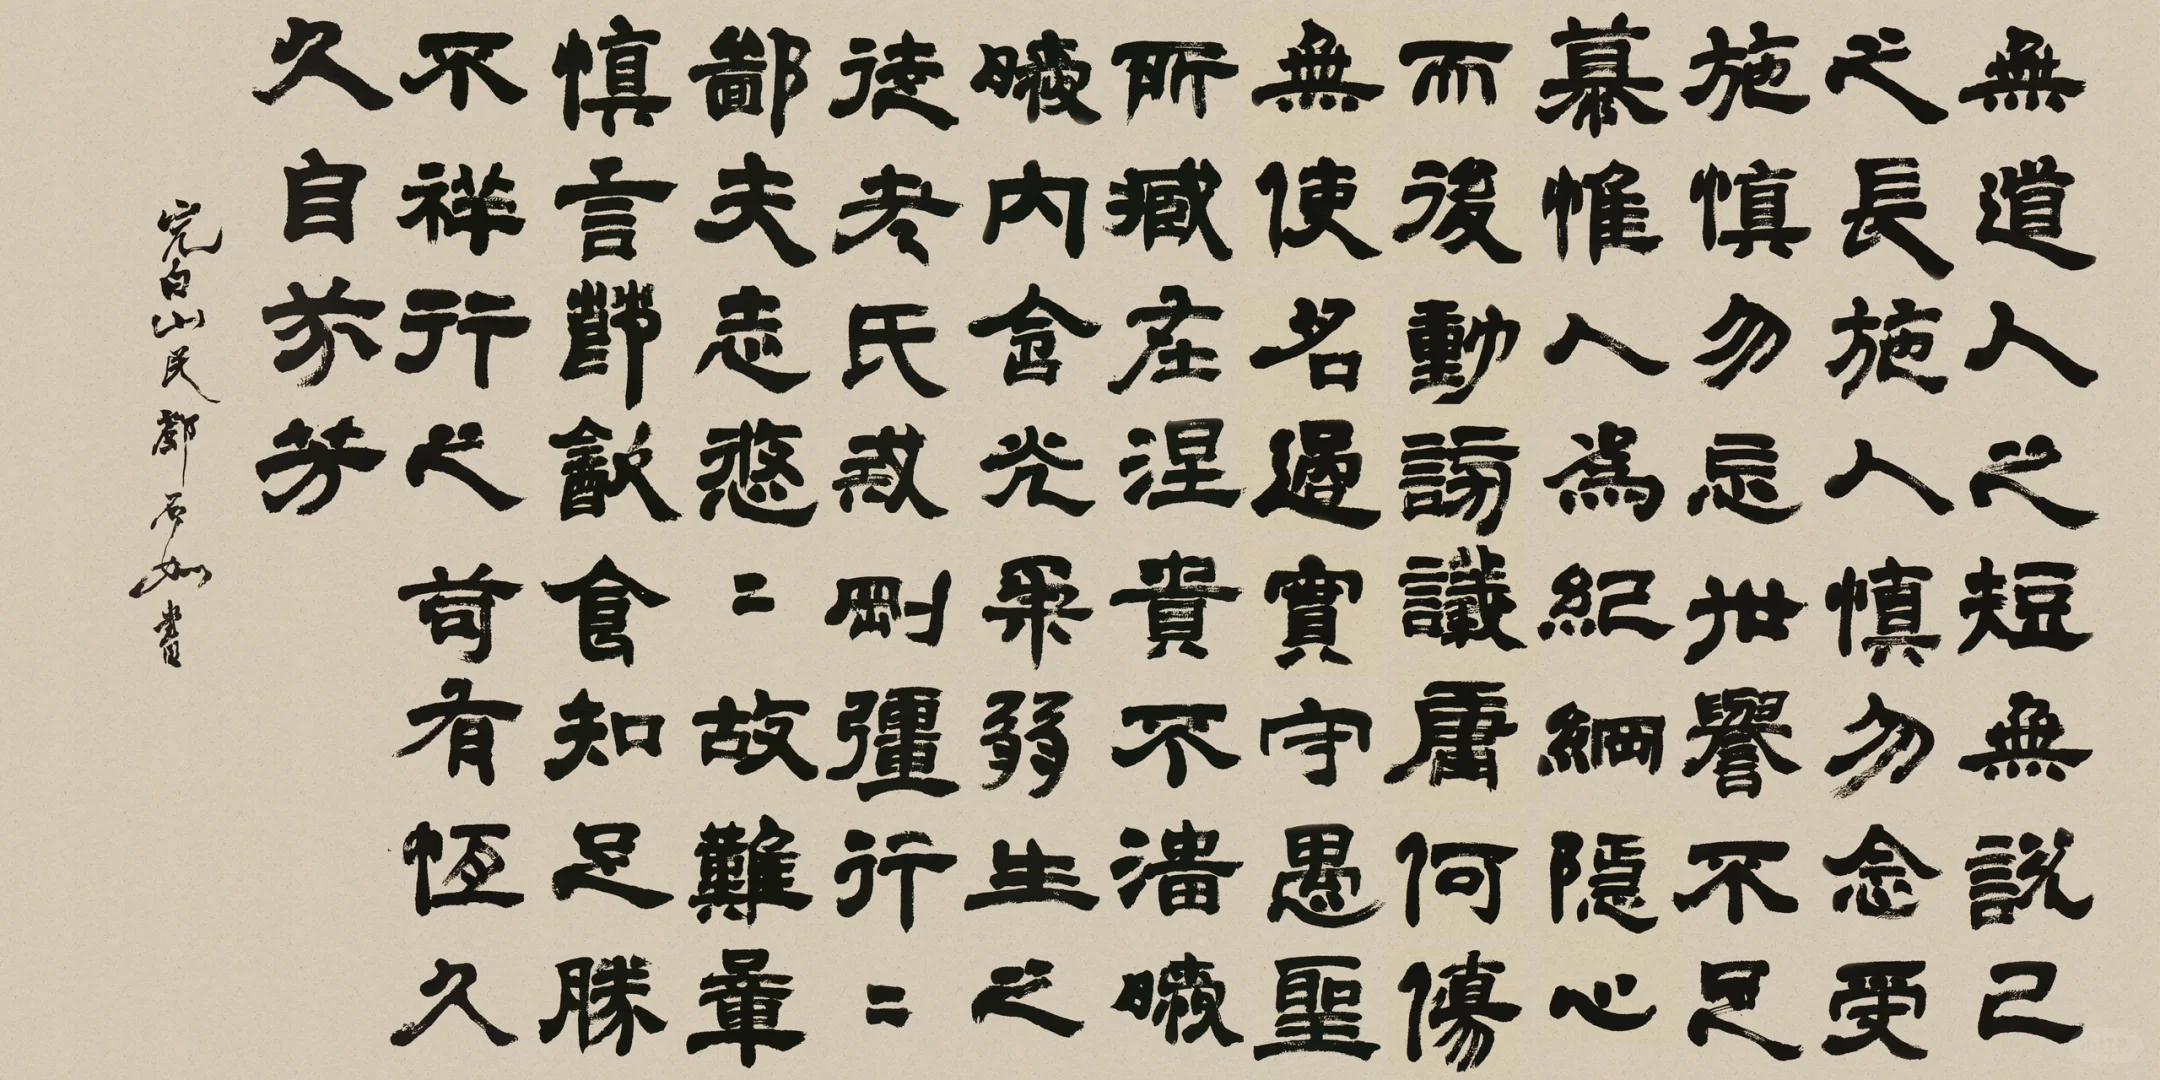 無道人之短無說己
之長施人慎勿念受
施慎勿忘世譽不足
慕惟人為紀綱隱心
而後動謗讖庸何傷
無使名過實守愚聖
所臧在涅貴不淄曖
曖內含光柔弱生之
徒老氏戒剛彊行〻
鄙夫志悠〻故難量
慎言節飲食知足勝
不祥行之苟有恆久
久自芬芳
完白山民鄧石如書